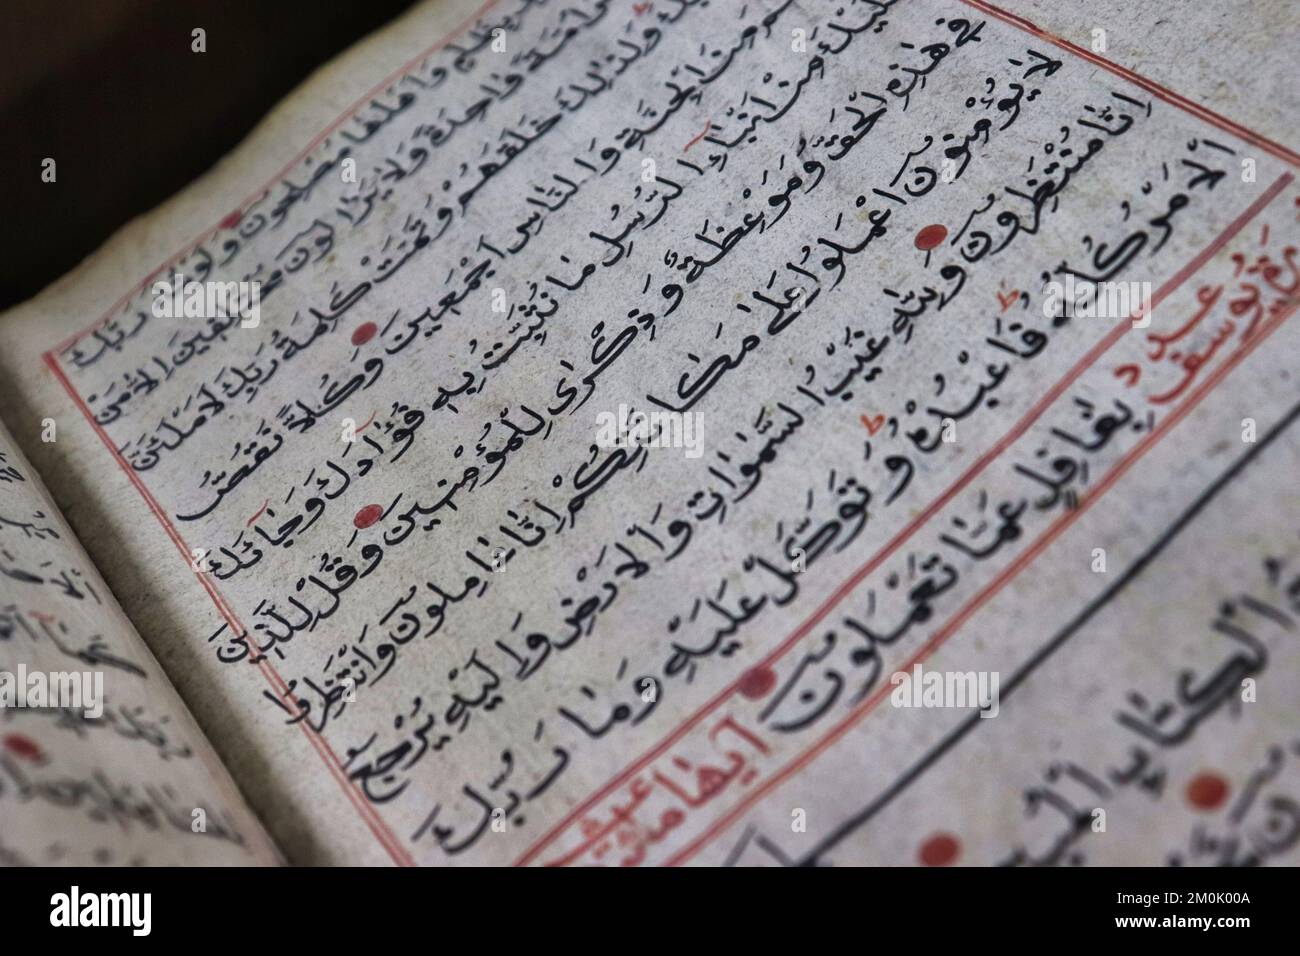 بِظُلْمٍ وَاَهْلُهَا مُصْلِحُونَ وَلَوْ شَآءَ رَبُّكَ
اُمَّةً وَاحِدَةً وَلَا يَزَالُونَ مُخْتَلِفِينَ اِلَّا مَنْ
رَبُّكَ وَلِذٰلِكَ خَلَقَهُمْ وَتَمَّتْ كَلِمَةُ رَبِّكَ لَاَمْلَئَنَّ
مِنَ الْجِنَّةِ وَالنَّاسِ اَجْمَعِينَ وَكُلًّا نَقُصُّ
عَلَيْكَ مِنْ اَنْبَآءِ الرُّسُلِ مَا نُثَبِّتُ بِهِ فُؤَادَكَ وَجَآئَكَ
فِي هٰذِهِ الْحَقُّ وَمَوْعِظَةٌ وَذِكْرٰى لِلْمُؤْمِنِينَ وَقُلْ لِلَّذِينَ
لَا يُؤْمِنُونَ اعْمَلُوا عَلٰى مَكَانَتِكُمْ اِنَّا عَامِلُونَ وَانْتَظِرُوا
اِنَّا مُنْتَظِرُونَ وَلِلّٰهِ غَيْبُ السَّمٰوَاتِ وَالْاَرْضِ وَاِلَيْهِ يُرْجَعُ
الْاَمْرُ كُلُّهُ فَاعْبُدْهُ وَتَوَكَّلْ عَلَيْهِ وَمَا رَبُّكَ
بِغَافِلٍ عَمَّا تَعْمَلُونَ
يُوسُفَ عدد
آيتها
الْكِتَابِ الْمُبِينِ
alamy
Image ID: 2M0K00A
www.alamy.com